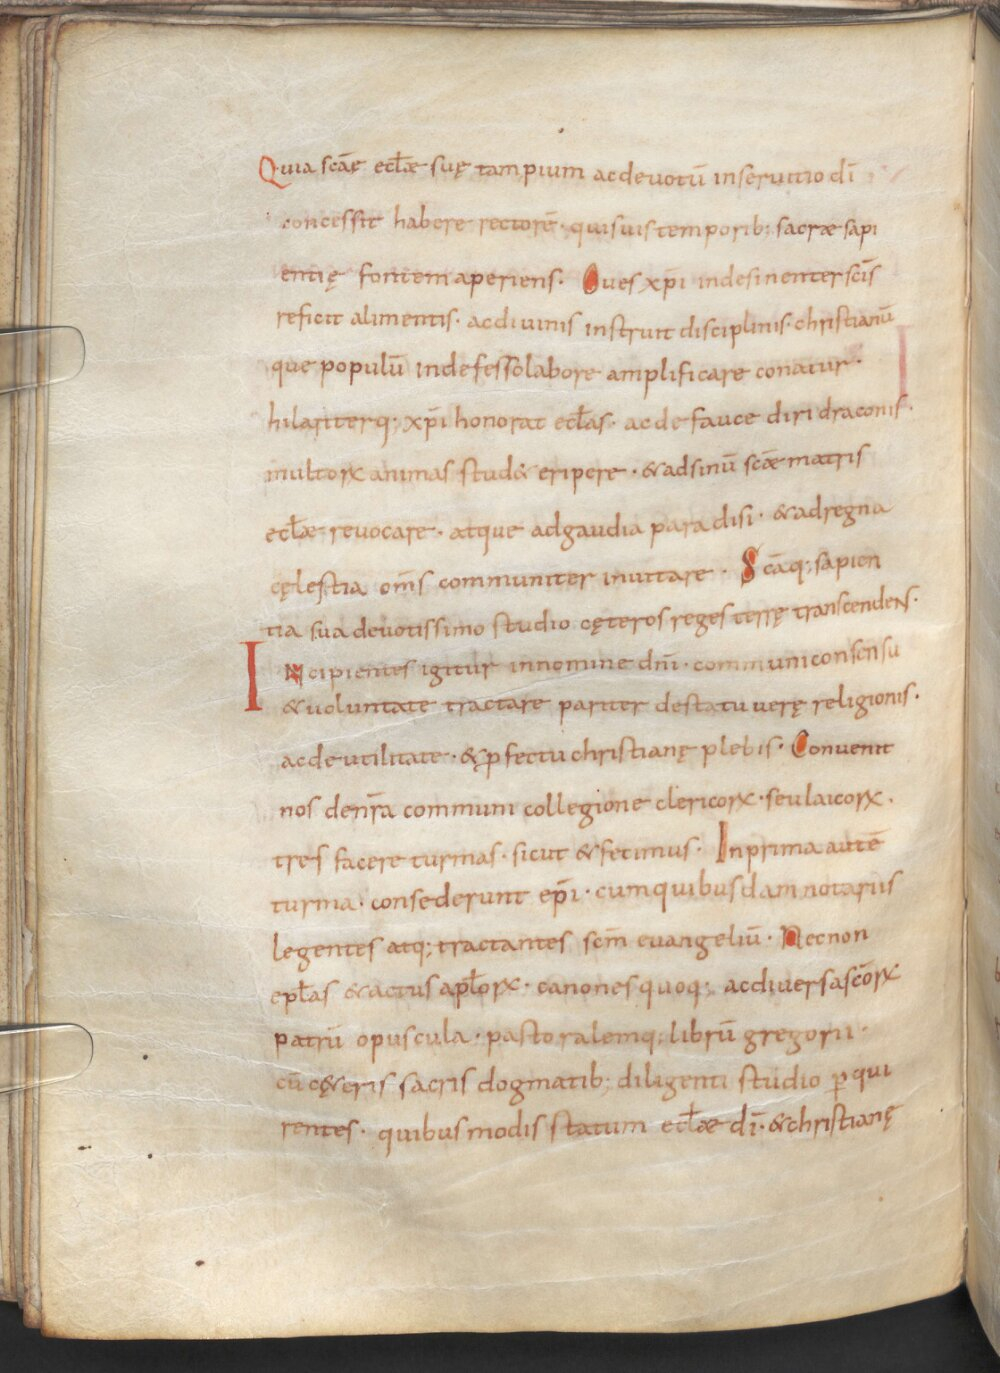 Quia scāę ecłæ suę tam pium ac deuotū in seruitio dī
concessit habere rectorē · qui suis temporib; sacræ sapi
entię fontem aperiens. Oues xp̄i indesinenter scīs
reficit alimentis · ac diuinis instruit disciplinis · christianū
que populū indefesso labore amplificare conatur ·
hilariterq; xp̄i honorat ecłas · ac de fauce diri draconis ·
multorꝝ animas stud& eripere · & ad sinū scǣ matris
ecłæ reuocare · atque ad gaudia paradisi · & ad regna
cęlestia om̄s communiter inuitare · Scāq; sapien
tia sua deuotissimo studio cęteros reges terrę transcendens ·
Incipientes igitur in nomine dn̄i · communi consensu
& uoluntate tractare pariter de statu uerę religionis ·
ac de utilitate · & ꝓfectu christianę plebis · Conuenit
nos de nr̄a communi collegione clericorꝝ · seu laicorꝝ ·
tres facere turmas · sicut & fecimus · In prima autē
turma · consederunt ep̄i · cum quibusdam notariis
legentes atq; tractantes scm̄ euangeliū · Necnon
epłas & actus apłorꝝ · canones quoq; ac diuersa scōrꝝ
patrū opuscula · pastoralemq; librū gregorii ·
cū c&̨eris sacris dogmatib; diligenti studio ꝑqui
rentes · quibus modis statum ecłæ dī · & christianę